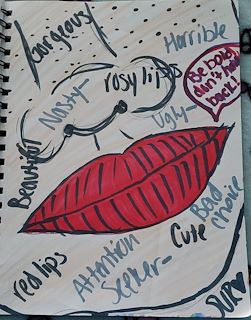 Gorgeous
Horrible
Nasty-
rosy lips
Be bold,
don't
back!
Ugly-
Beautiful
Cute
Bold
choice
Attention
Seeker-
red lips